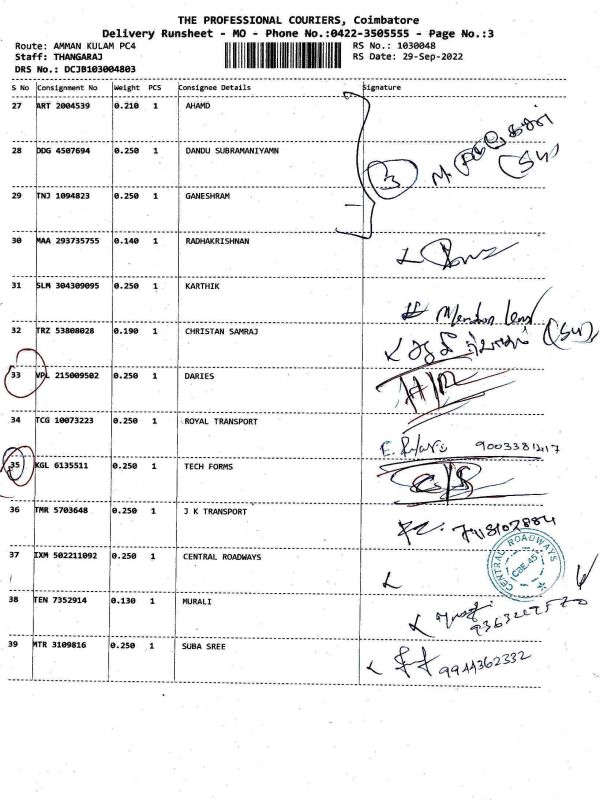 THE PROFESSIONAL COURIERS, Coimbatore
Delivery Runsheet - MO - Phone No.:0422-3505555 - Page No.:3
Route: AMMAN KULAM PC4 RS No.: 1030048
Staff: THANGARAJ RS Date: 29-Sep-2022
DRS No.: DCJB103004803
S No Consignment No Weight PCS Consignee Details Signature
27 ART 2004539 0.210 1 AHAMD
28 DDG 4507694 0.250 1 DANDU SUBRAMANIYAMN
3
29 TNJ 1094823 0.250 1 GANESHRAM
30 MAA 293735755 0.140 1 RADHAKRISHNAN
31 SLM 304309095 0.250 1 KARTHIK
32 TRZ 53808028 0.190 1 CHRISTAN SAMRAJ
33 VPL 215009502 0.250 1 DARIES
34 TCG 10073223 0.250 1 ROYAL TRANSPORT
35 KGL 6135511 0.250 1 TECH FORMS
36 TMR 5703648 0.250 1 J K TRANSPORT
37 IXM 502211092 0.250 1 CENTRAL ROADWAYS
CENTRAL ROADWAYS
CBE.45
38 TEN 7352914 0.130 1 MURALI
39 MTR 3109816 0.250 1 SUBA SREE
9944362332